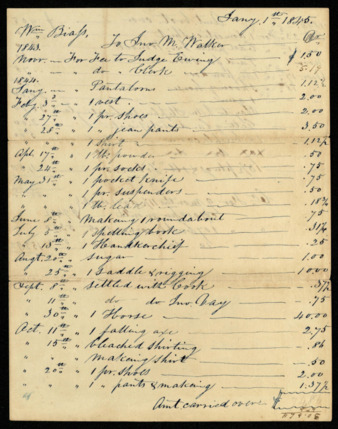 Jany 1st 1845.
Wm Biass, Dr
1843. To Jno. M. Walker
Novr - For Fee to Judge Ewing $1.50
" - " do " Clerk 5.19
1844.
Jany - " Pantaloons 1.12½
Feby 3 " 1 vest 2.00
" 27 " 1 pr. shoes 2.00
" 28 " 1 " jean pants 3.50
" " " 1 shirt 1.12½
Apl. 17th " 1 lb. powder .50
" 24 " 1 pr. socks .75
May 31st " 1 pocket knife .75
" " " 1 pr. suspenders .50
" " " 1 lb. .18¾
June " making 1 roundabout .75
July 5 " 1 spelling book .31¼
" 13 " 1 Handkerchief .25
Augt. 20 " sugar 1.00
" 25 " 1 saddle & rigging 10.00
Sept. 8th " settled with Cook .37½
" 11 " do do Jno. Gay .75
" 30 " 1 Horse 40.00
Oct. 11 " 1 falling axe 2.75
" 15th " bleached shirting .86
" " " making shirt .50
" 20th " 1 pr. shoes 2.00
" " " 1 " pants & making 1.37½
Amt carried over